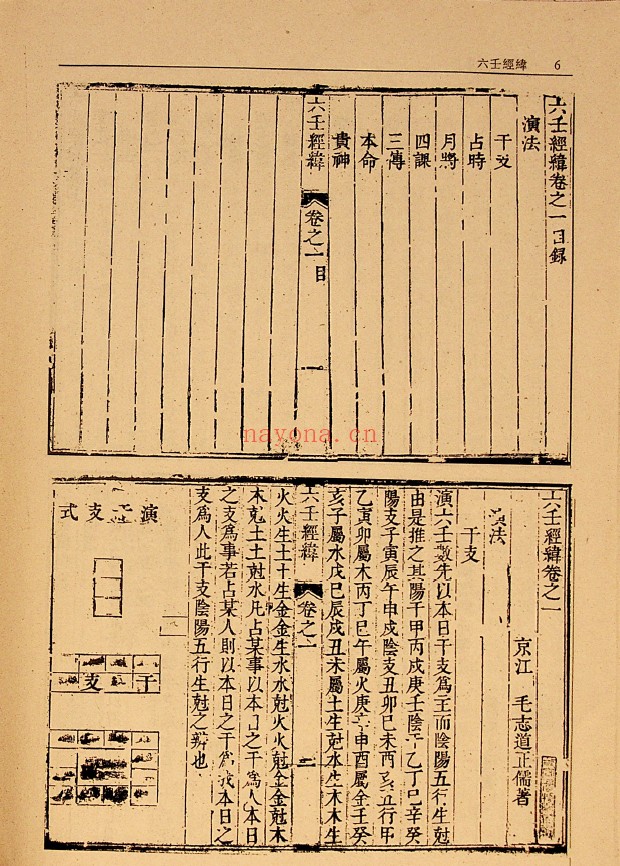 六壬經緯 6
六壬經緯卷之一目録
演法
干支
占時
月將
四課
三傳
本命
貴神
六壬經緯
卷之一目
一
nayona.cn
六壬經緯卷之一
京江 毛志道正儒著
法
干支
演六壬數先以本日干支爲主而陰陽五行生尅
由是推之其陽干甲丙戊庚壬陰干乙丁巳辛癸
陽支子寅辰午申戌陰支丑卯巳未酉亥五行甲
乙寅卯屬木丙丁巳午屬火庚辛申酉屬金壬癸
亥子屬水戊巳辰戌丑未屬土生尅水生木木生
六壬經緯
卷之一
二
火火生土土生金金生水水尅火火尅金金尅木
木尅土土尅水凡占某事以本日之干爲人本日
之支爲事若占某人則以本日之干爲我本日之
支爲人此干支陰陽五行生尅之辨也
演 支式
干
支